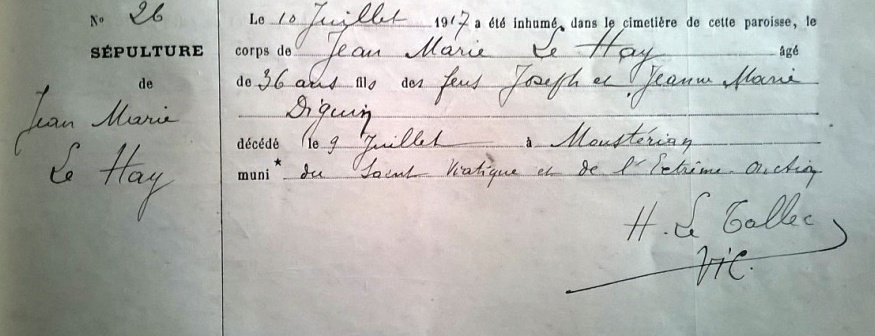 No 26
SÉPULTURE
de
Jean Marie
Le Hay
Le 10 Juillet 1917 a été inhumé, dans le cimetière de cette paroisse, le
corps de Jean Marie Le Hay âgé
de 36 ans fils des feus Joseph et Jeanne Marie
Diguin
décédé le 9 Juillet à Moustérian
muni * du Saint Viatique et de l'Extrême-onction
H. Le Tallec
Vic.